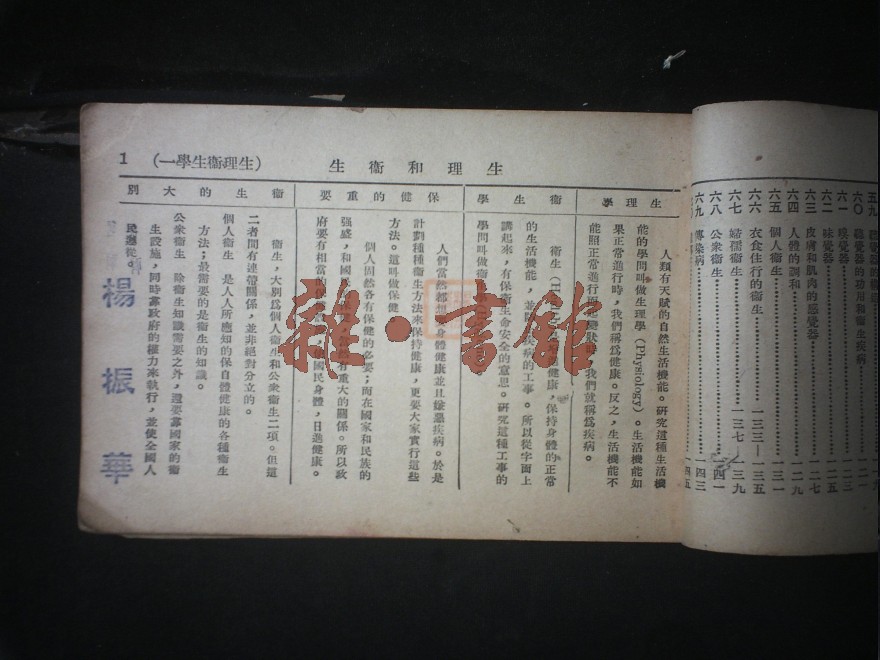 五九
六〇 聽覺器的功用和衞生疾病
六一 嗅覺器 一二三
六二 味覺器 一二五
六三 皮膚和肌肉的感覺器 一二七
六四 人體的調和 一二九
六五 個人衞生 一三一
六六 衣食住行的衞生 一三三—一三五
六七 婦孺衞生 一三七—一三九
六八 公衆衞生 一四一
六九 傳染病 一四三
生理和衞生
(生理衞生學一)
1
生理學
人類有天賦的自然生活機能。研究這種生活機
能的學問叫做生理學(Physiology)。生活機能如
果正常進行時,我們稱爲健康。反之,生活機能不
能照正常進行而起變狀時,我們就稱爲疾病。
衞生學
衞生 健康,保持身體的正常
的生活機能,並防 疾病的工事。所以從字面上
講起來,有保衞生命安全的意思。研究這種工事的
學問叫做衞
保健的重要
人們當然都想 身體健康並且 惡疾病。於是
計劃種種衞生方法來保持健康,更要大家實行這些
方法。這叫做保健
個人固然各有保健的必要;而在國家和民族的
强盛,和國民 有重大的關係。所以政
府要有相當的保 國民身體,日進健康。
衞生的大別
衞生,大別爲個人衞生和公衆衞生二項。但這
二者間有連帶關係,並非絕對分立的。
個人衞生 是人人所應知的保自體健康的各種衞生
方法;最需要的是衞生的知識。
公衆衞生 除衞生知識需要之外,還要靠國家的衞
生設施,同時靠政府的權力來執行,並使全國人
民遵從。
楊振華
雜·書館